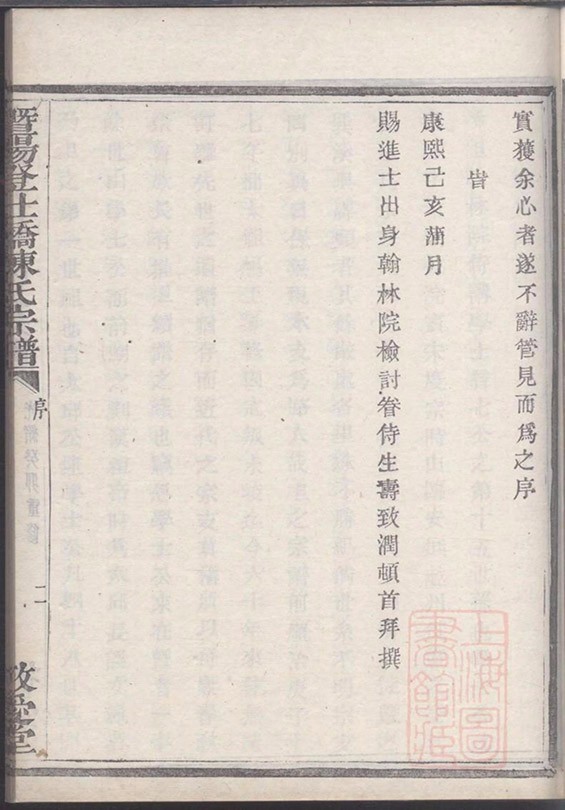 實獲余心者遂不辭管見而為之序
旹
康熙己亥蒲月
賜進士出身翰林院檢討眷侍生壽致潤頓首拜撰
暨陽登仕橋陳氏宗譜
序
二
敬愛堂
上海圖書館藏